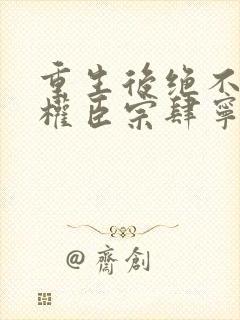 重生後绝不
權臣宗肆寧
@齊創